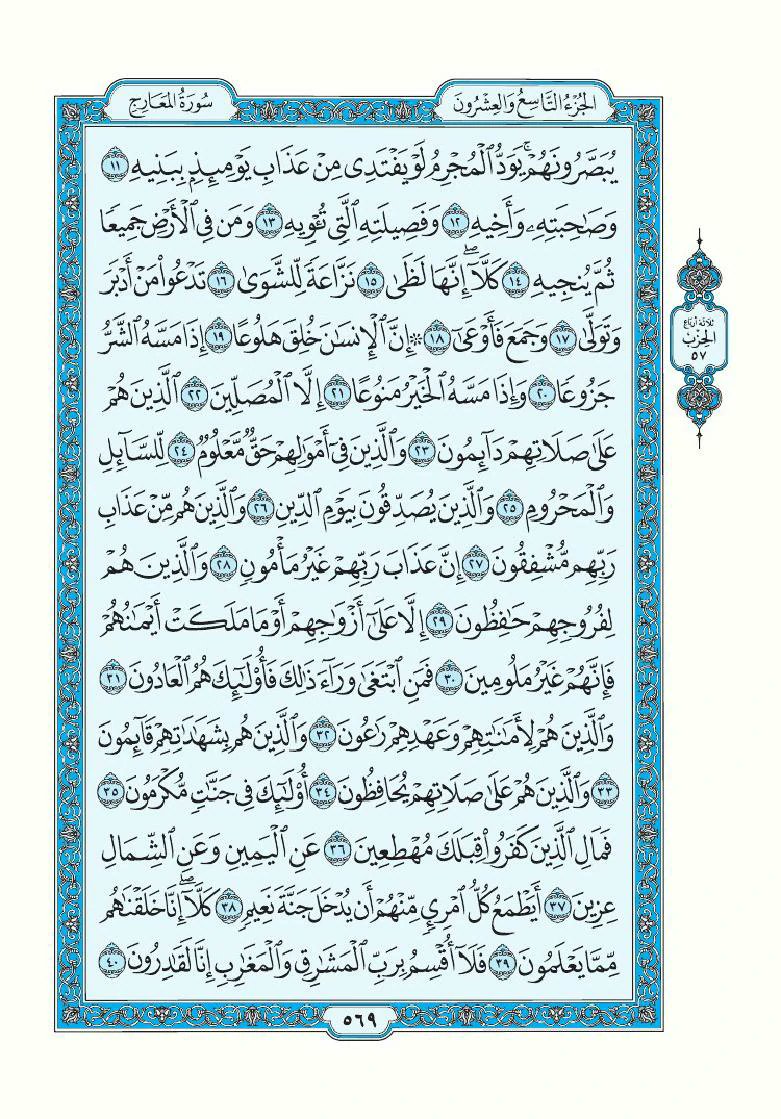 الجُزْءُ التَّاسِعُ وَالعِشْرُونَ
سُورَةُ المَعَارِجِ
يُبَصَّرُونَهُمْۚ يَوَدُّ ٱلْمُجْرِمُ لَوْ يَفْتَدِى مِنْ عَذَابِ يَوْمِئِذِۭ بِبَنِيهِ ١١
وَصَٰحِبَتِهِۦ وَأَخِيهِ ١٢ وَفَصِيلَتِهِ ٱلَّتِى تُـْٔوِيهِ ١٣ وَمَن فِى ٱلْأَرْضِ جَمِيعًا
ثُمَّ يُنجِيهِ ١٤ كَلَّآۖ إِنَّهَا لَظَىٰ ١٥ نَزَّاعَةً لِّلشَّوَىٰ ١٦ تَدْعُوا۟ مَنْ أَدْبَرَ
وَتَوَلَّىٰ ١٧ وَجَمَعَ فَأَوْعَىٰٓ ١٨ ۞ إِنَّ ٱلْإِنسَٰنَ خُلِقَ هَلُوعًا ١٩ إِذَا مَسَّهُ ٱلشَّرُّ
جَزُوعًا ٢٠ وَإِذَا مَسَّهُ ٱلْخَيْرُ مَنُوعًا ٢١ إِلَّا ٱلْمُصَلِّينَ ٢٢ ٱلَّذِينَ هُمْ
عَلَىٰ صَلَاتِهِمْ دَآئِمُونَ ٢٣ وَٱلَّذِينَ فِىٓ أَمْوَٰلِهِمْ حَقٌّ مَّعْلُومٌ ٢٤ لِّلسَّآئِلِ
وَٱلْمَحْرُومِ ٢٥ وَٱلَّذِينَ يُصَدِّقُونَ بِيَوْمِ ٱلدِّينِ ٢٦ وَٱلَّذِينَ هُم مِّنْ عَذَابِ
رَبِّهِم مُّشْفِقُونَ ٢٧ إِنَّ عَذَابَ رَبِّهِمْ غَيْرُ مَأْمُونٍ ٢٨ وَٱلَّذِينَ هُمْ
لِفُرُوجِهِمْ حَٰفِظُونَ ٢٩ إِلَّا عَلَىٰٓ أَزْوَٰجِهِمْ أَوْ مَا مَلَكَتْ أَيْمَٰنُهُمْ
فَإِنَّهُمْ غَيْرُ مَلُومِينَ ٣٠ فَمَنِ ٱبْتَغَىٰ وَرَآءَ ذَٰلِكَ فَأُو۟لَٰٓئِكَ هُمُ ٱلْعَادُونَ ٣١
وَٱلَّذِينَ هُمْ لِأَمَٰنَٰتِهِمْ وَعَهْدِهِمْ رَٰعُونَ ٣٢ وَٱلَّذِينَ هُم بِشَهَٰدَٰتِهِمْ قَآئِمُونَ
٣٣ وَٱلَّذِينَ هُمْ عَلَىٰ صَلَاتِهِمْ يُحَافِظُونَ ٣٤ أُو۟لَٰٓئِكَ فِى جَنَّٰتٍ مُّكْرَمُونَ ٣٥
فَمَالِ ٱلَّذِينَ كَفَرُوا۟ قِبَلَكَ مُهْطِعِينَ ٣٦ عَنِ ٱلْيَمِينِ وَعَنِ ٱلشِّمَالِ
عِزِينَ ٣٧ أَيَطْمَعُ كُلُّ ٱمْرِئٍ مِّنْهُمْ أَن يُدْخَلَ جَنَّةَ نَعِيمٍ ٣٨ كَلَّآۖ إِنَّا خَلَقْنَٰهُم
مِّمَّا يَعْلَمُونَ ٣٩ فَلَآ أُقْسِمُ بِرَبِّ ٱلْمَشَٰرِقِ وَٱلْمَغَٰرِبِ إِنَّا لَقَٰدِرُونَ ٤٠
ثلاثة أرباع
الحِزب
٥٧
٥٦٩